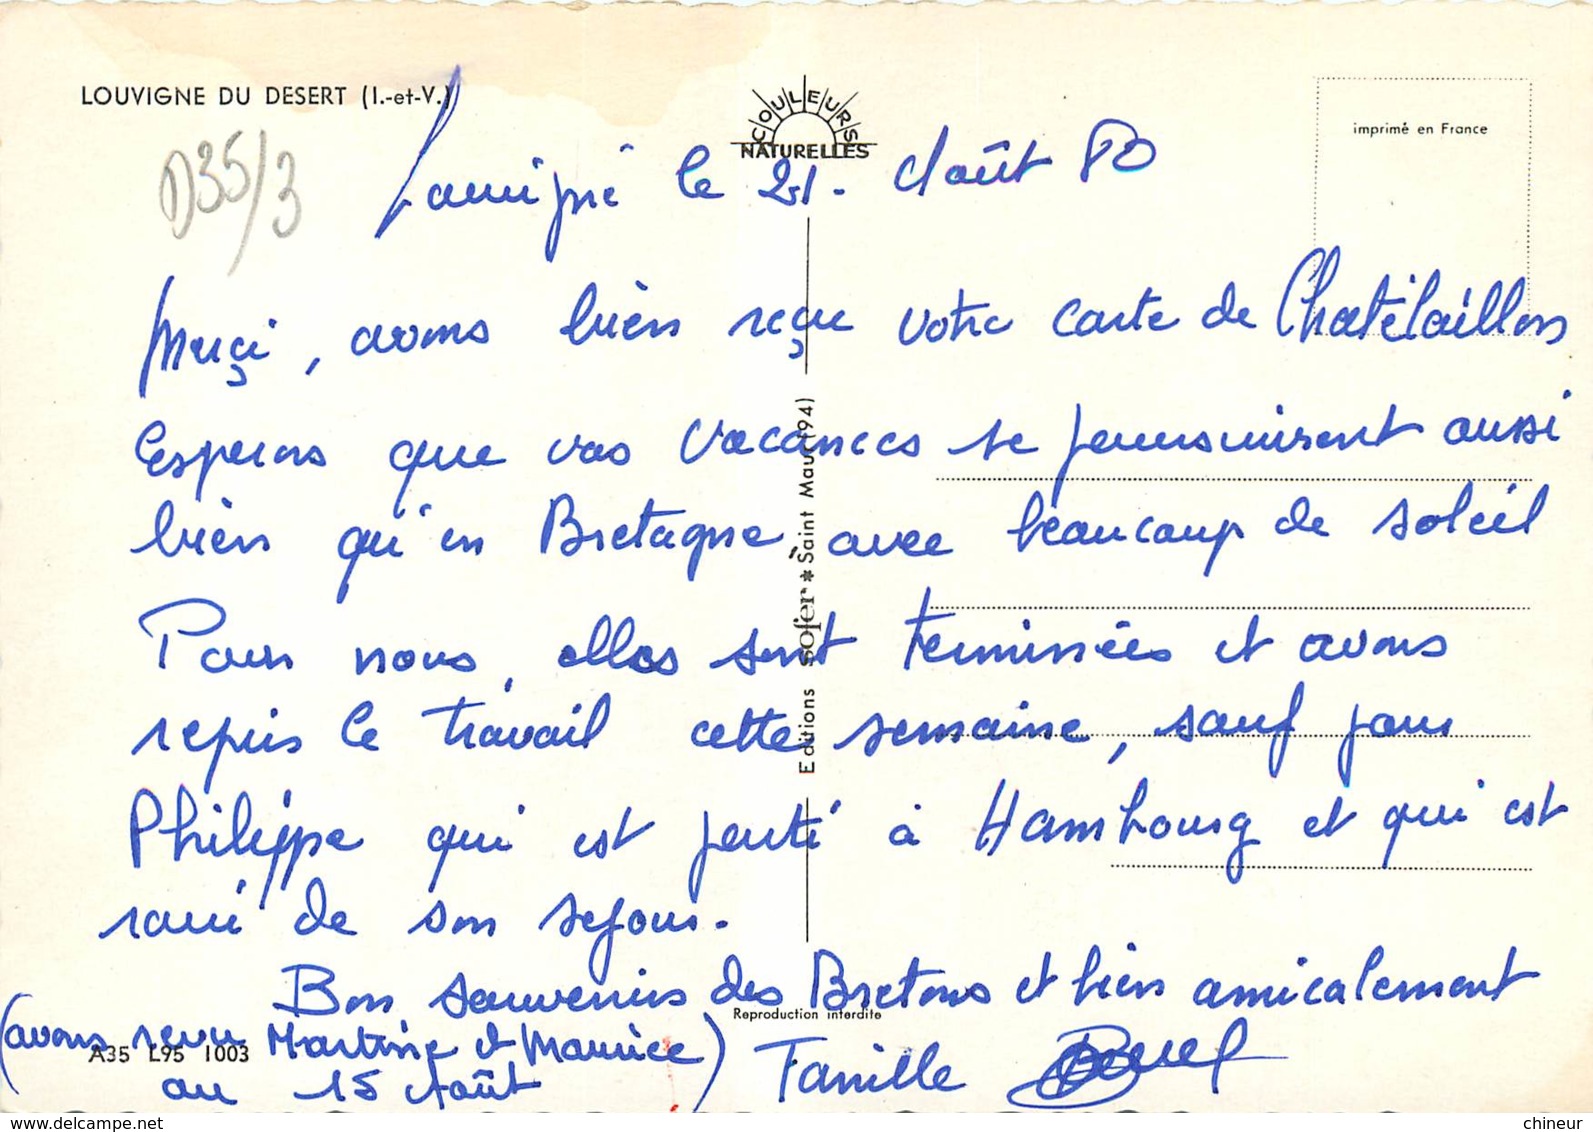 LOUVIGNE DU DESERT (I.-et-V.)
COULEURS
NATURELLES
imprimé en France
D35/3
le 21. Août 80
Merçi, avons bien reçu votre carte de Chatélaillon
Esperons que vos vacances se poursuivent aussi
bien qu'en Bretagne, avec beaucoup de soleil
Pour nous, elles sont terminées et avons
repris le travail cette semaine, sauf pour
Philippe qui est parti à Hambourg et qui est
ravi de son sejour.
Bon souvenirs des Bretons et bien amicalement
(avons revu Martine et Maurice)
au 15 Août
Famille
Editions sofer * Saint Maur (94)
Reproduction interdite
A35 L95 1003
delcampe.net
chineur